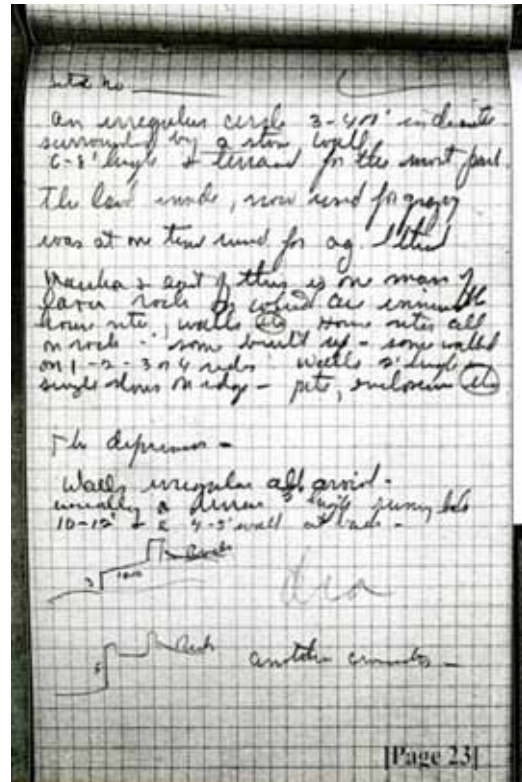 Site no
an irregular circle 3-400' in diameter
surrounded by a stone wall
6-8' high & terraced for the most part.
The land inside, now used for grazing
was at one time used for ag.
& east of this is on mass of
lava rock on which are
house site, walls etc House sites all
on rock - some built up - some walled
on 1-2-3 or 4 sides walls 2' high
single stones on edge - pits, enclosure etc
The depression -
Walls irregular all around -
usually a terrace 3' high running back
10-12' & a 4-5' wall at back -
3
Rocks
5
Rocks
another
[Page 23]